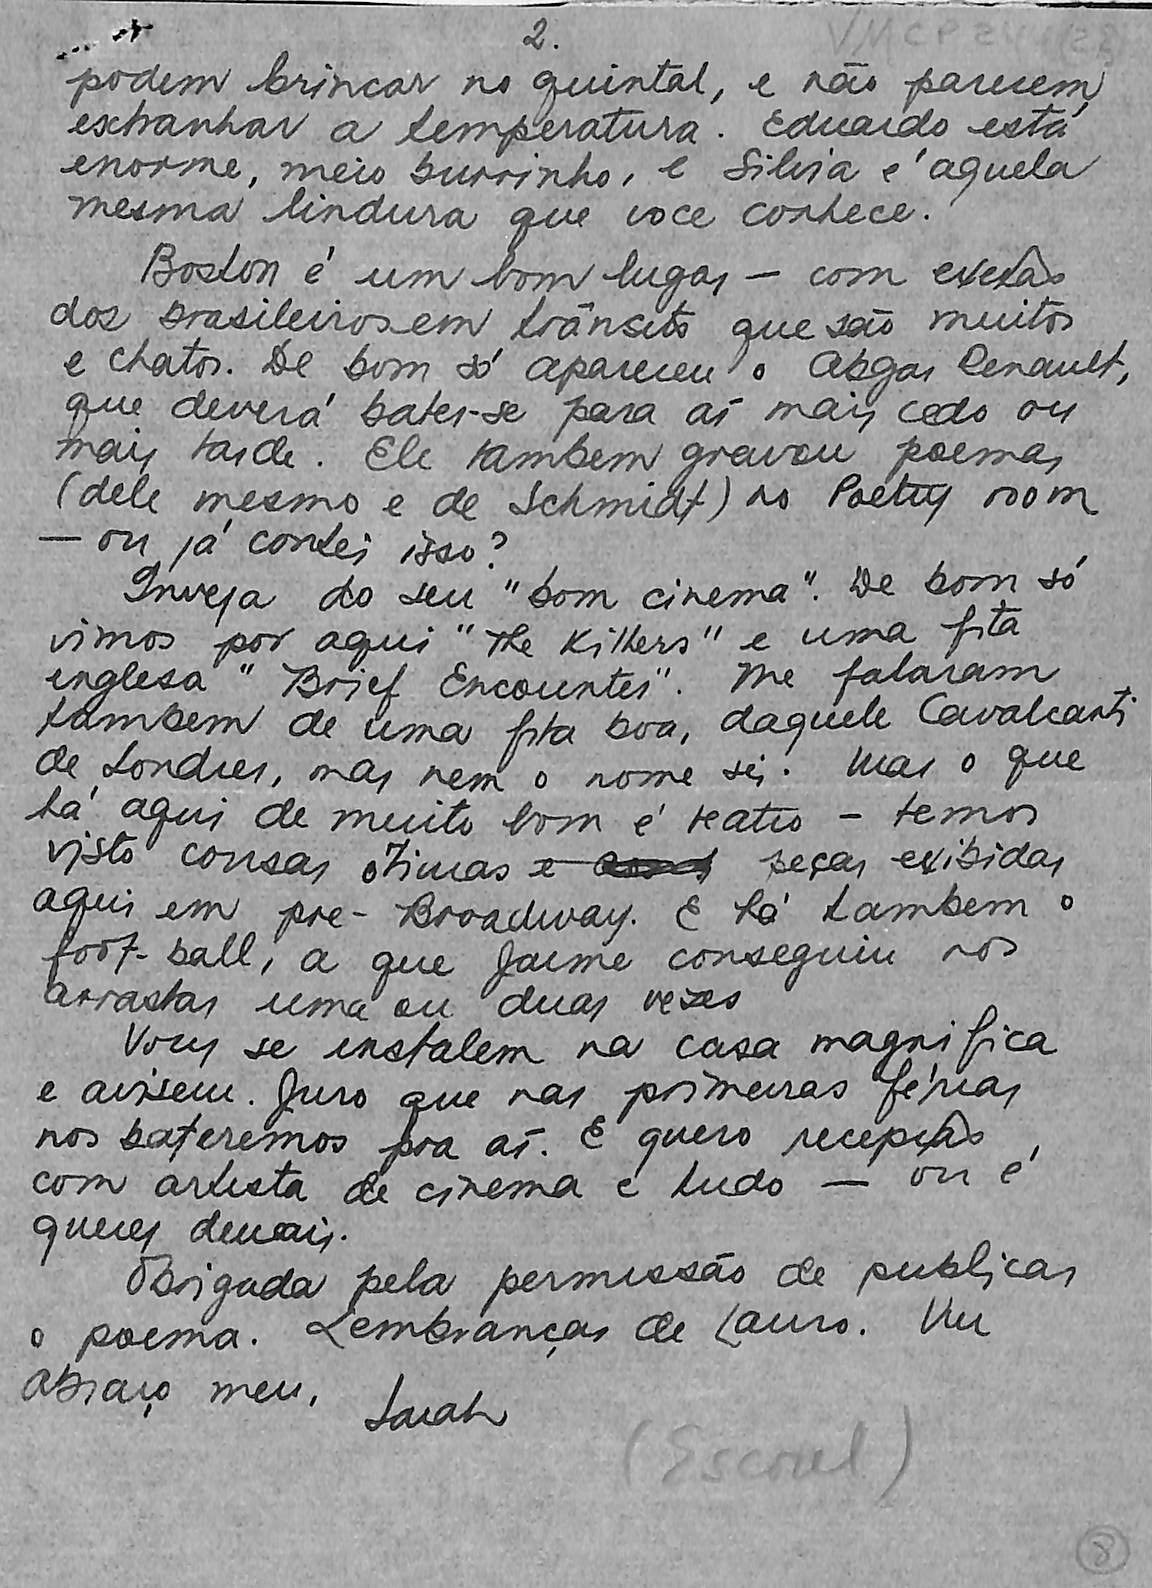 2.
podem brincar no quintal, e não parecem
extranhar a temperatura. Eduardo está
enorme, meio burrinho, e Silvia é aquela
mesma lindura que voce conhece.
Boston é um bom lugar – com exeção
dos brasileiros em trânsito que são muitos
e chatos. De bom só apareceu o Abgar Renault,
que deverá bater-se para aí mais cedo ou
mais tarde. Ele tambem gravou poemas
(dele mesmo e de Schmidt) no Poetry room
– ou já contei isso?
Inveja do seu "bom cinema". De bom só
vimos por aqui "The Killers" e uma fita
inglesa "Brief Encounter". Me falaram
tambem de uma fita boa, daquele Cavalcanti
de Londres, mas nem o nome sei. Mas o que
há aqui de muito bom é teatro – temos
visto cousas ótimas e peças exibidas
aqui em pre-Broadway. E há tambem o
foot-ball, a que Jaime conseguiu nos
arrastar uma ou duas vezes
Voces se instalem na casa magnifica
e avisem. Juro que nas primeiras férias
nos bateremos pra aí. E quero recepção
com artista de cinema e tudo – ou é
querer demais.
Obrigada pela permissão de publicar
o poema. Lembranças de Lauro. Um
abraço meu,
Sarah
(Escorel)
8